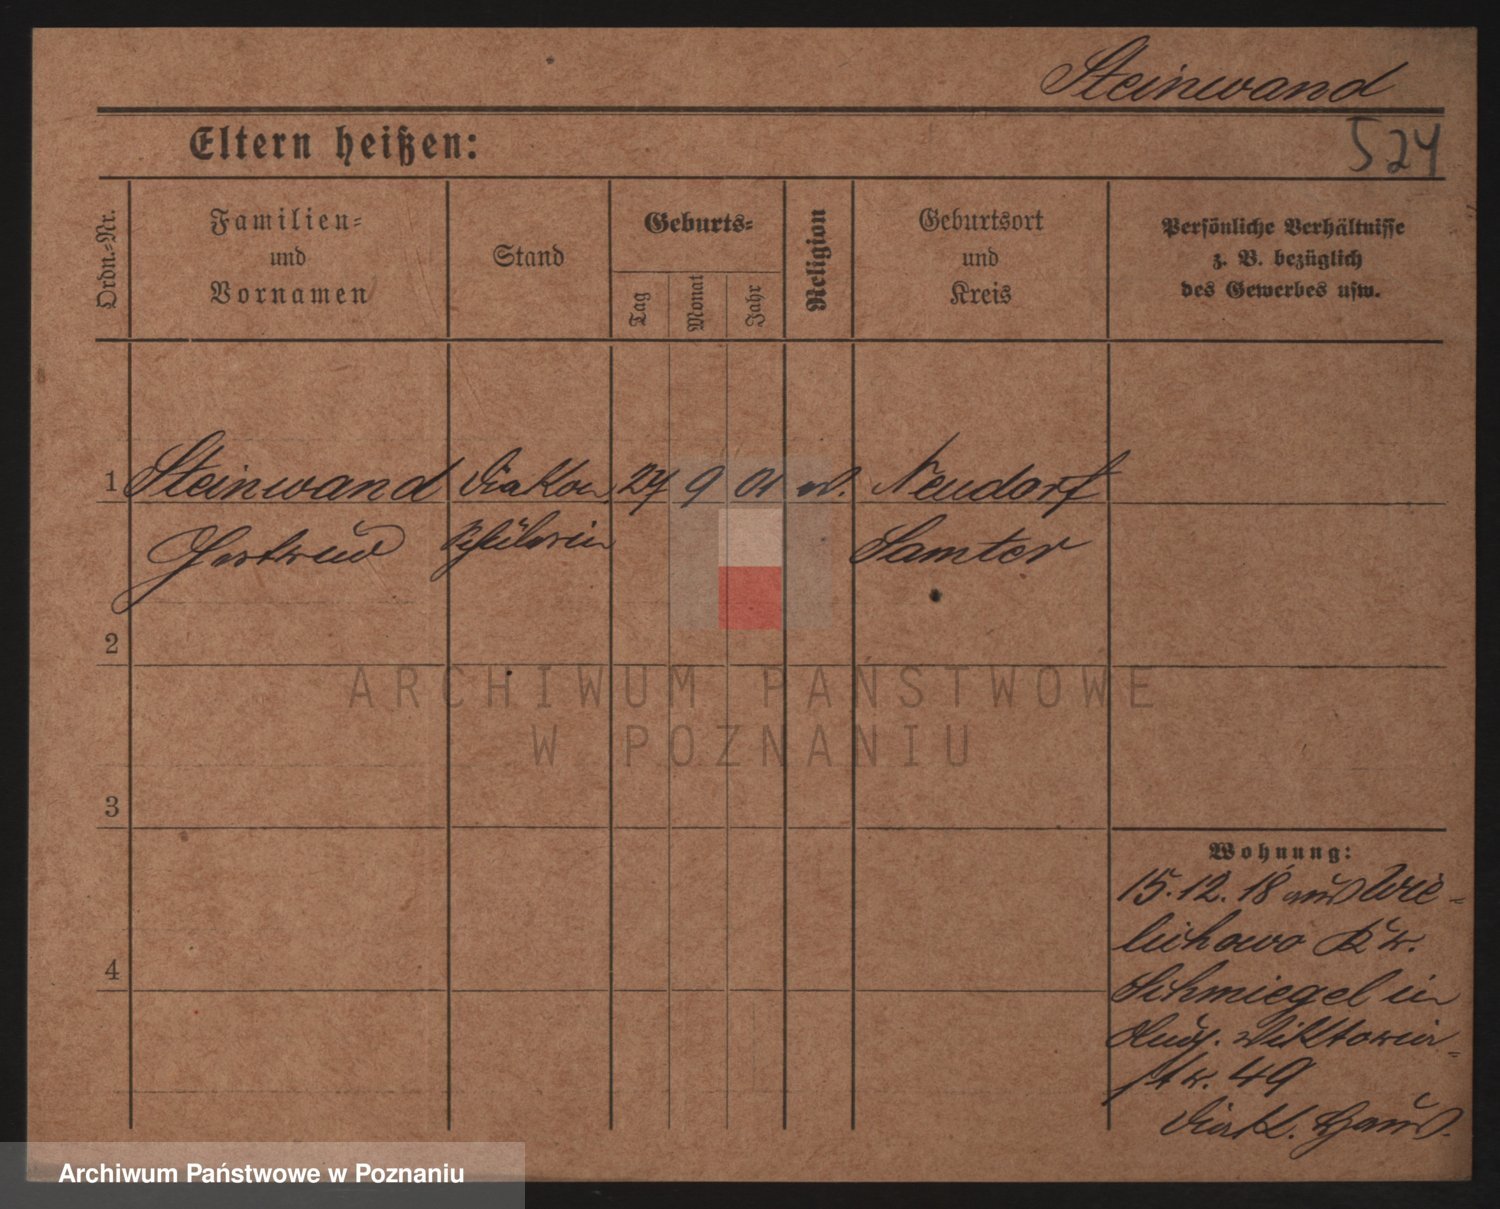 Steinwand
Eltern heißen:
524
Ordn.-Nr.
Familien-
und
Vornamen
Stand
Geburts-
Tag
Monat
Jahr
Religion
Geburtsort
und
Kreis
Persönliche Verhältnisse
z. B. bezüglich
des Gewerbes usw.
1 Steinwand Diakon. 24 9 01 ev. Neudorf
Gertrud Schülerin Samter
2
ARCHIWUM PAŃSTWOWE
W POZNANIU
3
Wohnung:
15.12.18 aus Wie-
lichowo Kr.
4
Schmiegel in
Aug. Viktoria-
str. 49
Diak. Haus.
Archiwum Państwowe w Poznaniu